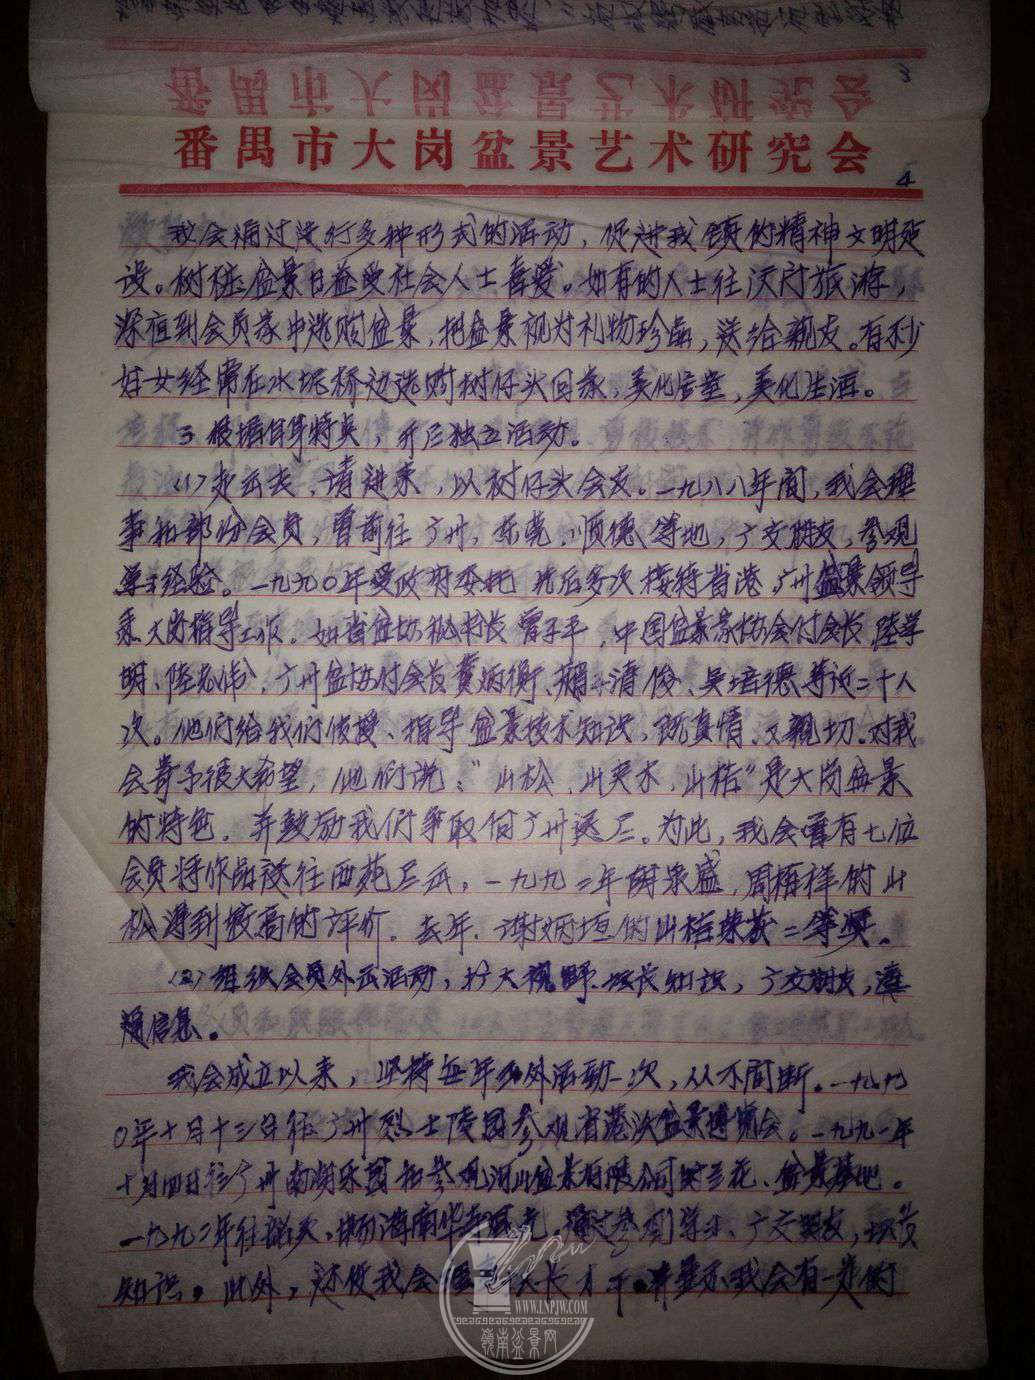 3
番禺市大岗盆景艺术研究会
4
我会通过进行多种形式的活动，促进我镇的精神文明建
设。树桩盆景日益受社会人士喜爱。如有的人士往沃门旅游，
深夜到会员家中选购盆景，把盆景视为礼物珍品，送给亲友。有不少
好女经常在水坭桥边选购树仔头回家，美化居室，美化生活。
3 根据自身特点，开展独立活动。
(1) 走出去、请进来，以树仔头会友。一九八八年间，我会理
事和部份会员，曾前往广州，东莞，顺德等地，广交朋友，参观
学习经验。一九九〇年受政府委托 先后多次接待省港、广州盆景领导
来大岗指导工作。如省盆协秘书长曾子平，中国盆景协会付会长陆学
明、陆志伟，广州盆协付会长黄炳衡、清俊、吴培德等近二十人
次。他们给我们传授、指导盆景技术知识，既真情、又亲切。对我
会寄予很大希望，他们说："山松、山夹木、山桔"是大岗盆景
的特色。并鼓励我们争取向广州送展。为此，我会曾有七位
会员将作品送往西苑展出。一九九二年谢永盛，周梅祥的山
松得到极高的评价。去年，谢炳垣的山桔荣获二等奖。
(2) 组织会员外出活动，扩大视野、增长知识，广交朋友，沟
通信息。
我会成立以来，坚持每年外活动一次，从不间断。一九九
〇年十月十三日往广州烈士陵园参观省港澳盆景博览会。一九九一年
十月四日往广州南湖乐园和参观河山盆景有限公司兰花、盆景基地。
一九九二年往，海南。通过参观学习、广交朋友，增长
知识。此外，还使我会长才干。并显示我会有一定的
WWW.LNPJW.COM
嶺南盆景网